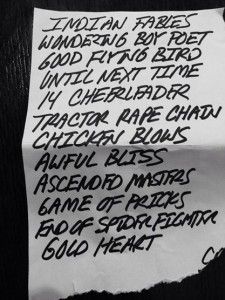 INDIAN FABLES
WONDERING BOY POET
GOOD FLYING BIRD
UNTIL NEXT TIME
14 CHEERLEADER
TRACTOR RAPE CHAIN
CHICKEN BLOWS
AWFUL BLISS
ASCENDED MASTERS
GAME OF PRICKS
END OF SPIDER FIGHTER
GOLD HEART